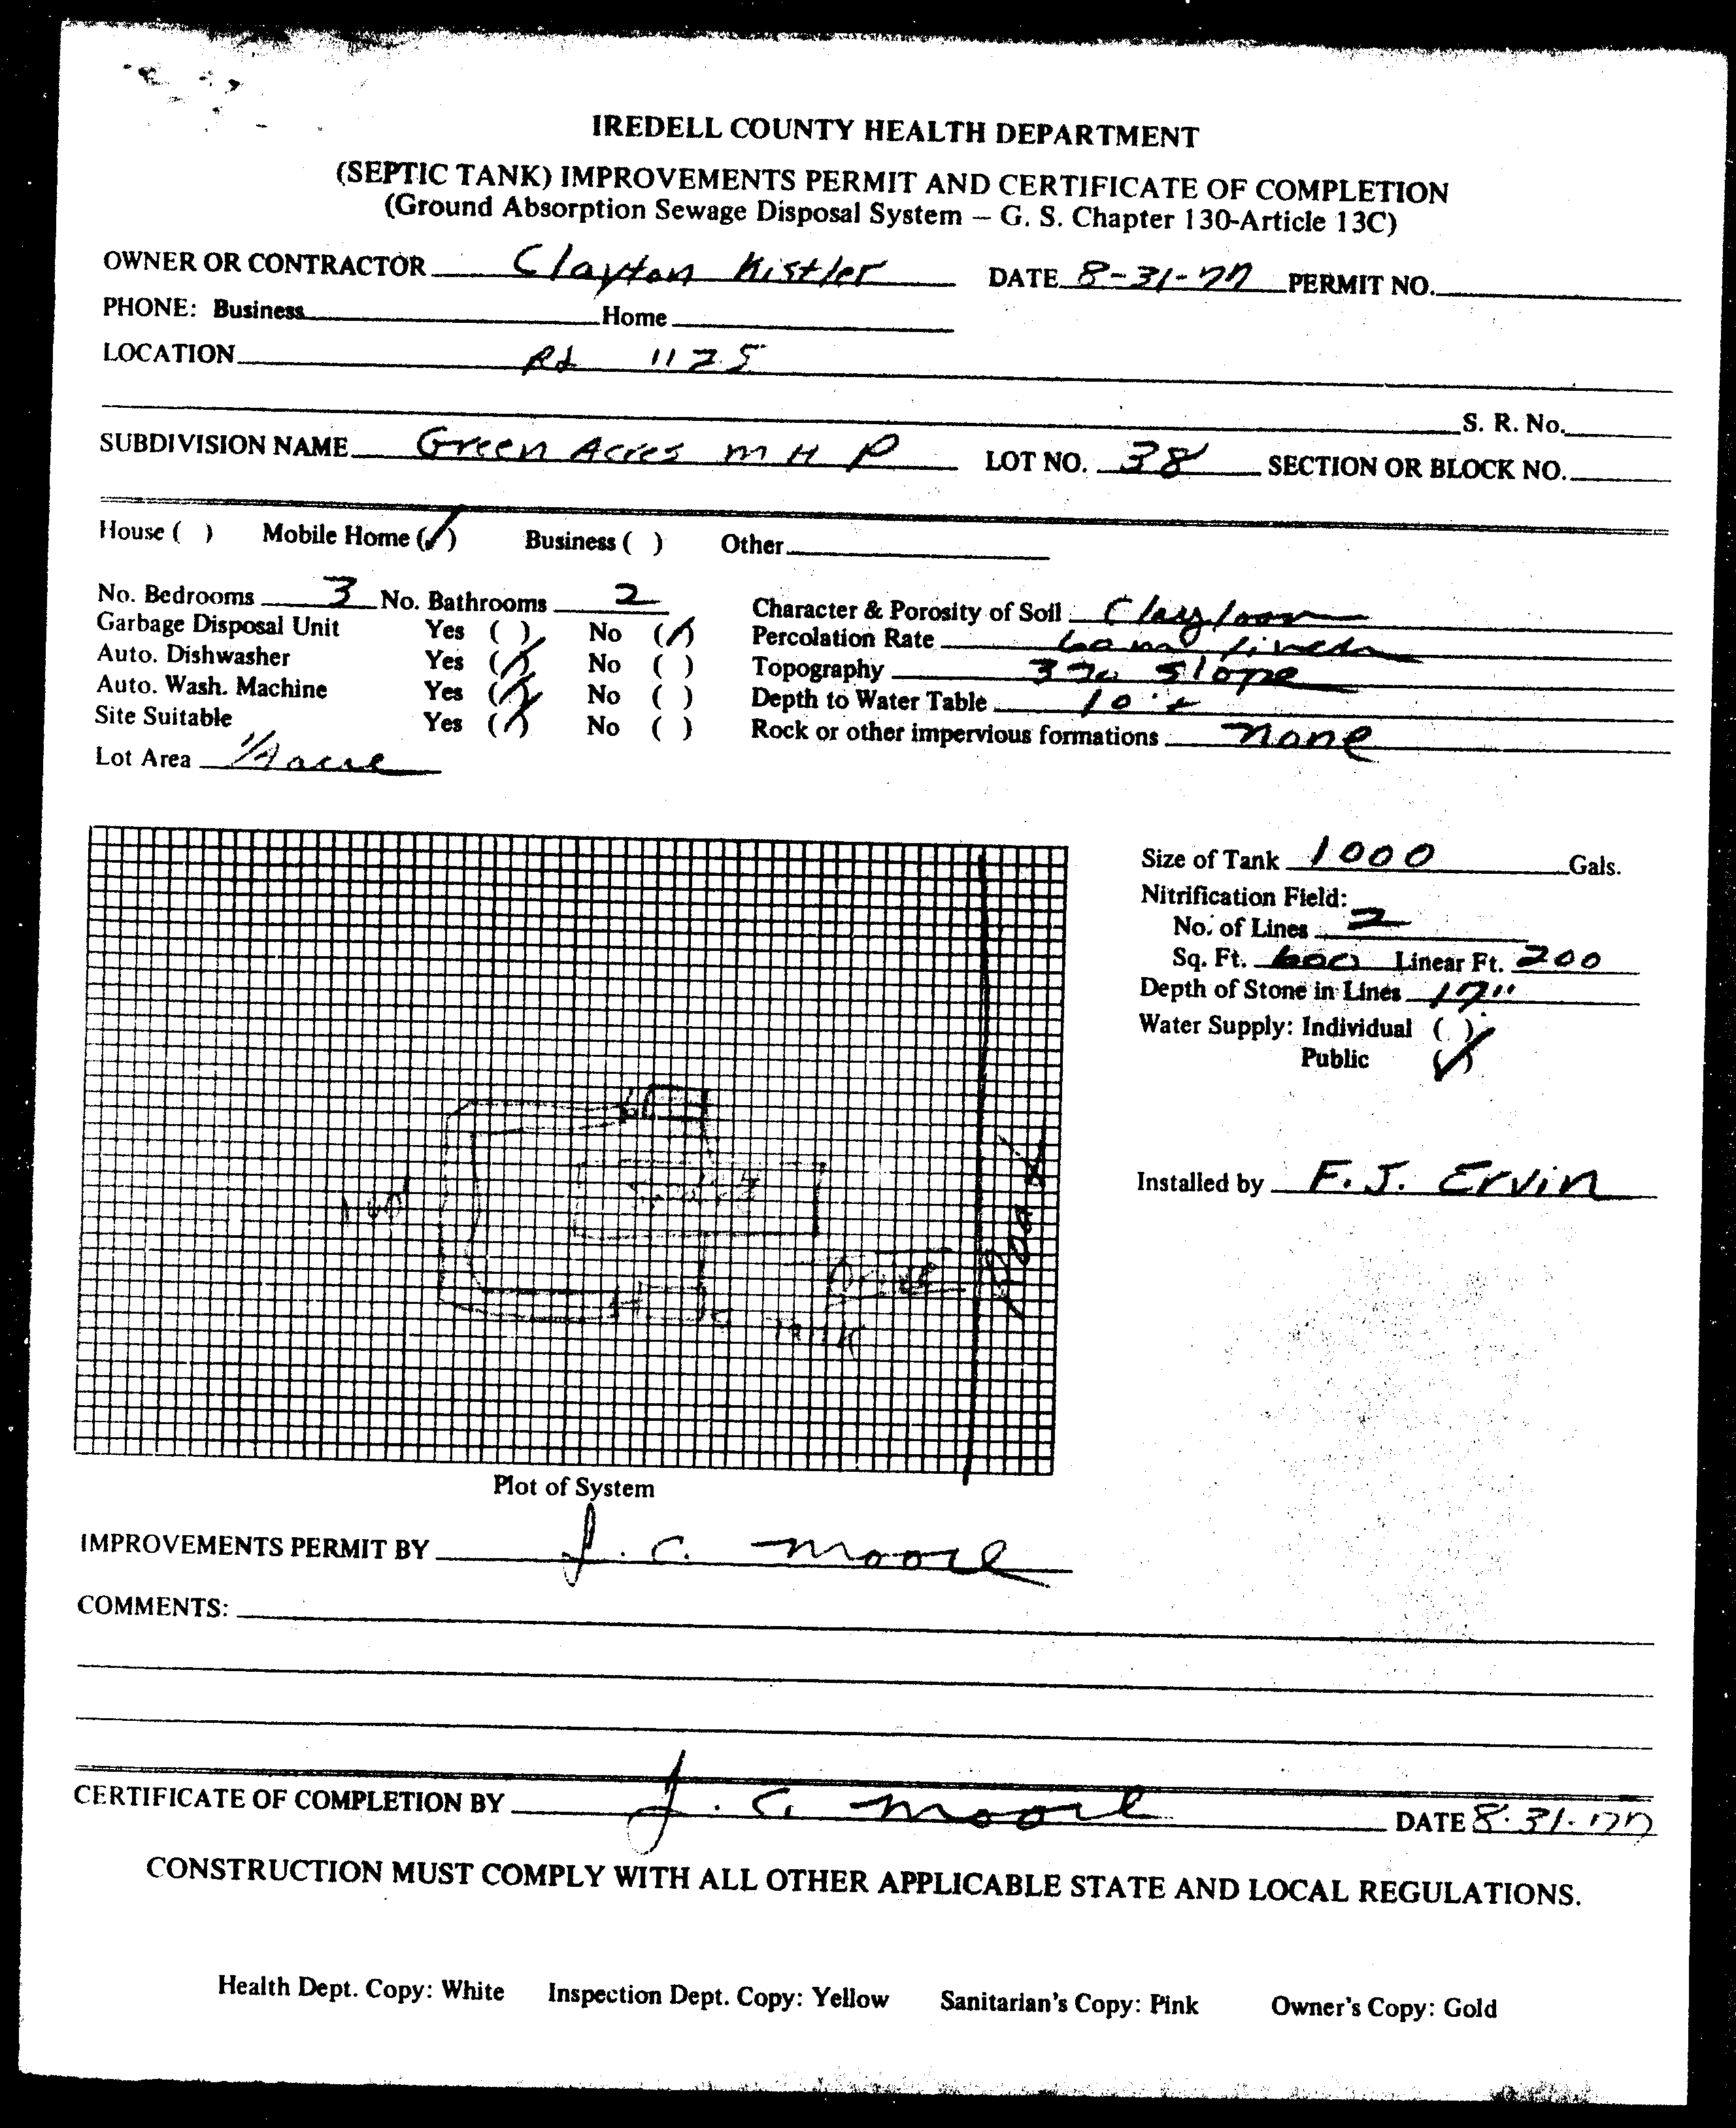 IREDELL COUNTY HEALTH DEPARTMENT
(SEPTIC TANK) IMPROVEMENTS PERMIT AND CERTIFICATE OF COMPLETION
(Ground Absorption Sewage Disposal System — G. S. Chapter 130-Article 13C)
OWNER OR CONTRACTOR Clayton Kistler DATE 8-31-77 PERMIT NO.
PHONE: Business Home
LOCATION Rd 1125
S. R. No.
SUBDIVISION NAME Green Acres M H P LOT NO. 38 SECTION OR BLOCK NO.
House ( ) Mobile Home (✓) Business ( ) Other
No. Bedrooms 3 No. Bathrooms 2 Character & Porosity of Soil Clay loam
Garbage Disposal Unit Yes ( ) No (✓) Percolation Rate 60 m/inch
Auto. Dishwasher Yes (✓) No ( ) Topography 3% Slope
Auto. Wash. Machine Yes (✓) No ( ) Depth to Water Table 10'+
Site Suitable Yes (✓) No ( ) Rock or other impervious formations none
Lot Area 1/4 acre
Size of Tank 1000 Gals.
Nitrification Field:
No. of Lines 2
Sq. Ft. 600 Linear Ft. 200
Depth of Stone in Lines 17"
Water Supply: Individual ( )
Public (✓)
Road
Installed by F. J. Ervin
Drive
Tank
Plot of System
IMPROVEMENTS PERMIT BY J. C. Moore
COMMENTS:
CERTIFICATE OF COMPLETION BY J. C. Moore DATE 8-31-77
CONSTRUCTION MUST COMPLY WITH ALL OTHER APPLICABLE STATE AND LOCAL REGULATIONS.
Health Dept. Copy: White Inspection Dept. Copy: Yellow Sanitarian's Copy: Pink Owner's Copy: Gold